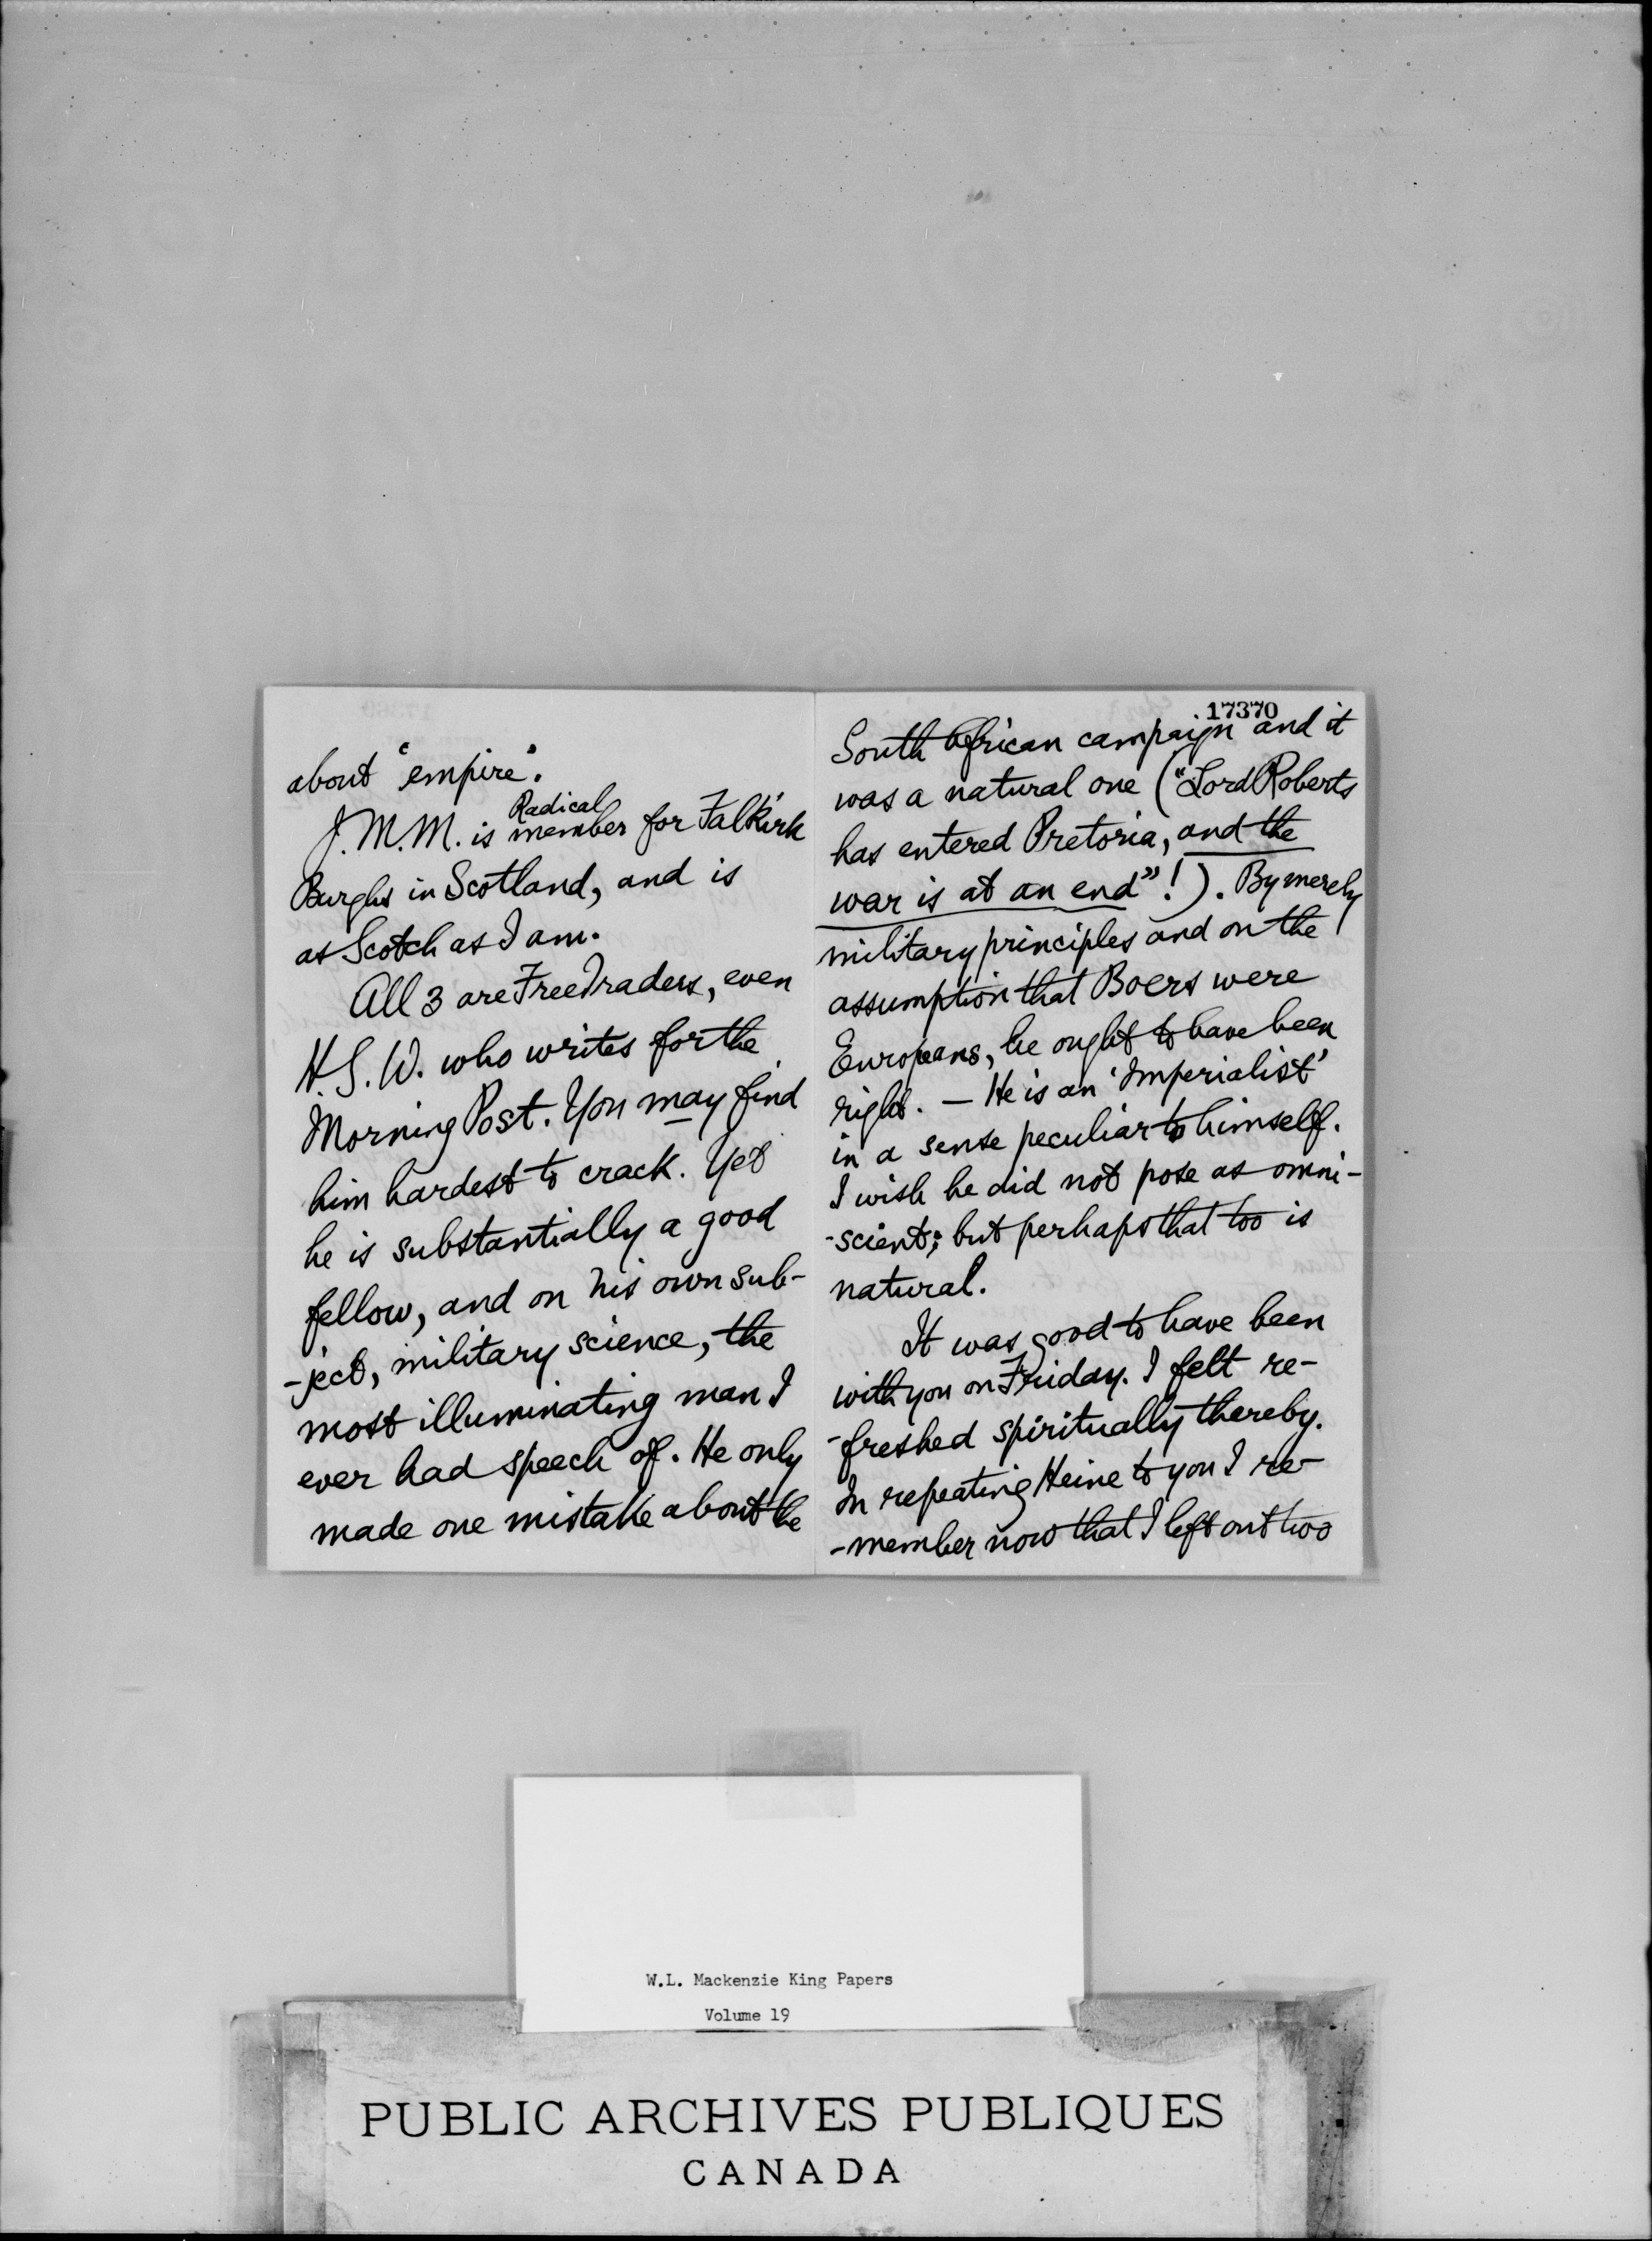 about "empire".
J.M.M. is Radical member for Falkirk
Burghs in Scotland, and is
as Scotch as I am.
All 3 are Free Traders, even
H.S.W. who writes for the
Morning Post. You may find
him hardest to crack. Yet
he is substantially a good
fellow, and on his own sub-
-ject, military science, the
most illuminating man I
ever had speech of. He only
made one mistake about the
17370
South African campaign and it
was a natural one ("Lord Roberts
has entered Pretoria, and the
war is at an end"!). By merely
military principles and on the
assumption that Boers were
Europeans, he ought to have been
right. — He is an 'Imperialist'
in a sense peculiar to himself.
I wish he did not pose as omni-
-scient; but perhaps that too is
natural.
It was good to have been
with you on Friday. I felt re-
-freshed spiritually thereby.
In repeating Heine to you I re-
-member now that I left out two
W.L. Mackenzie King Papers
Volume 19
PUBLIC ARCHIVES PUBLIQUES
CANADA